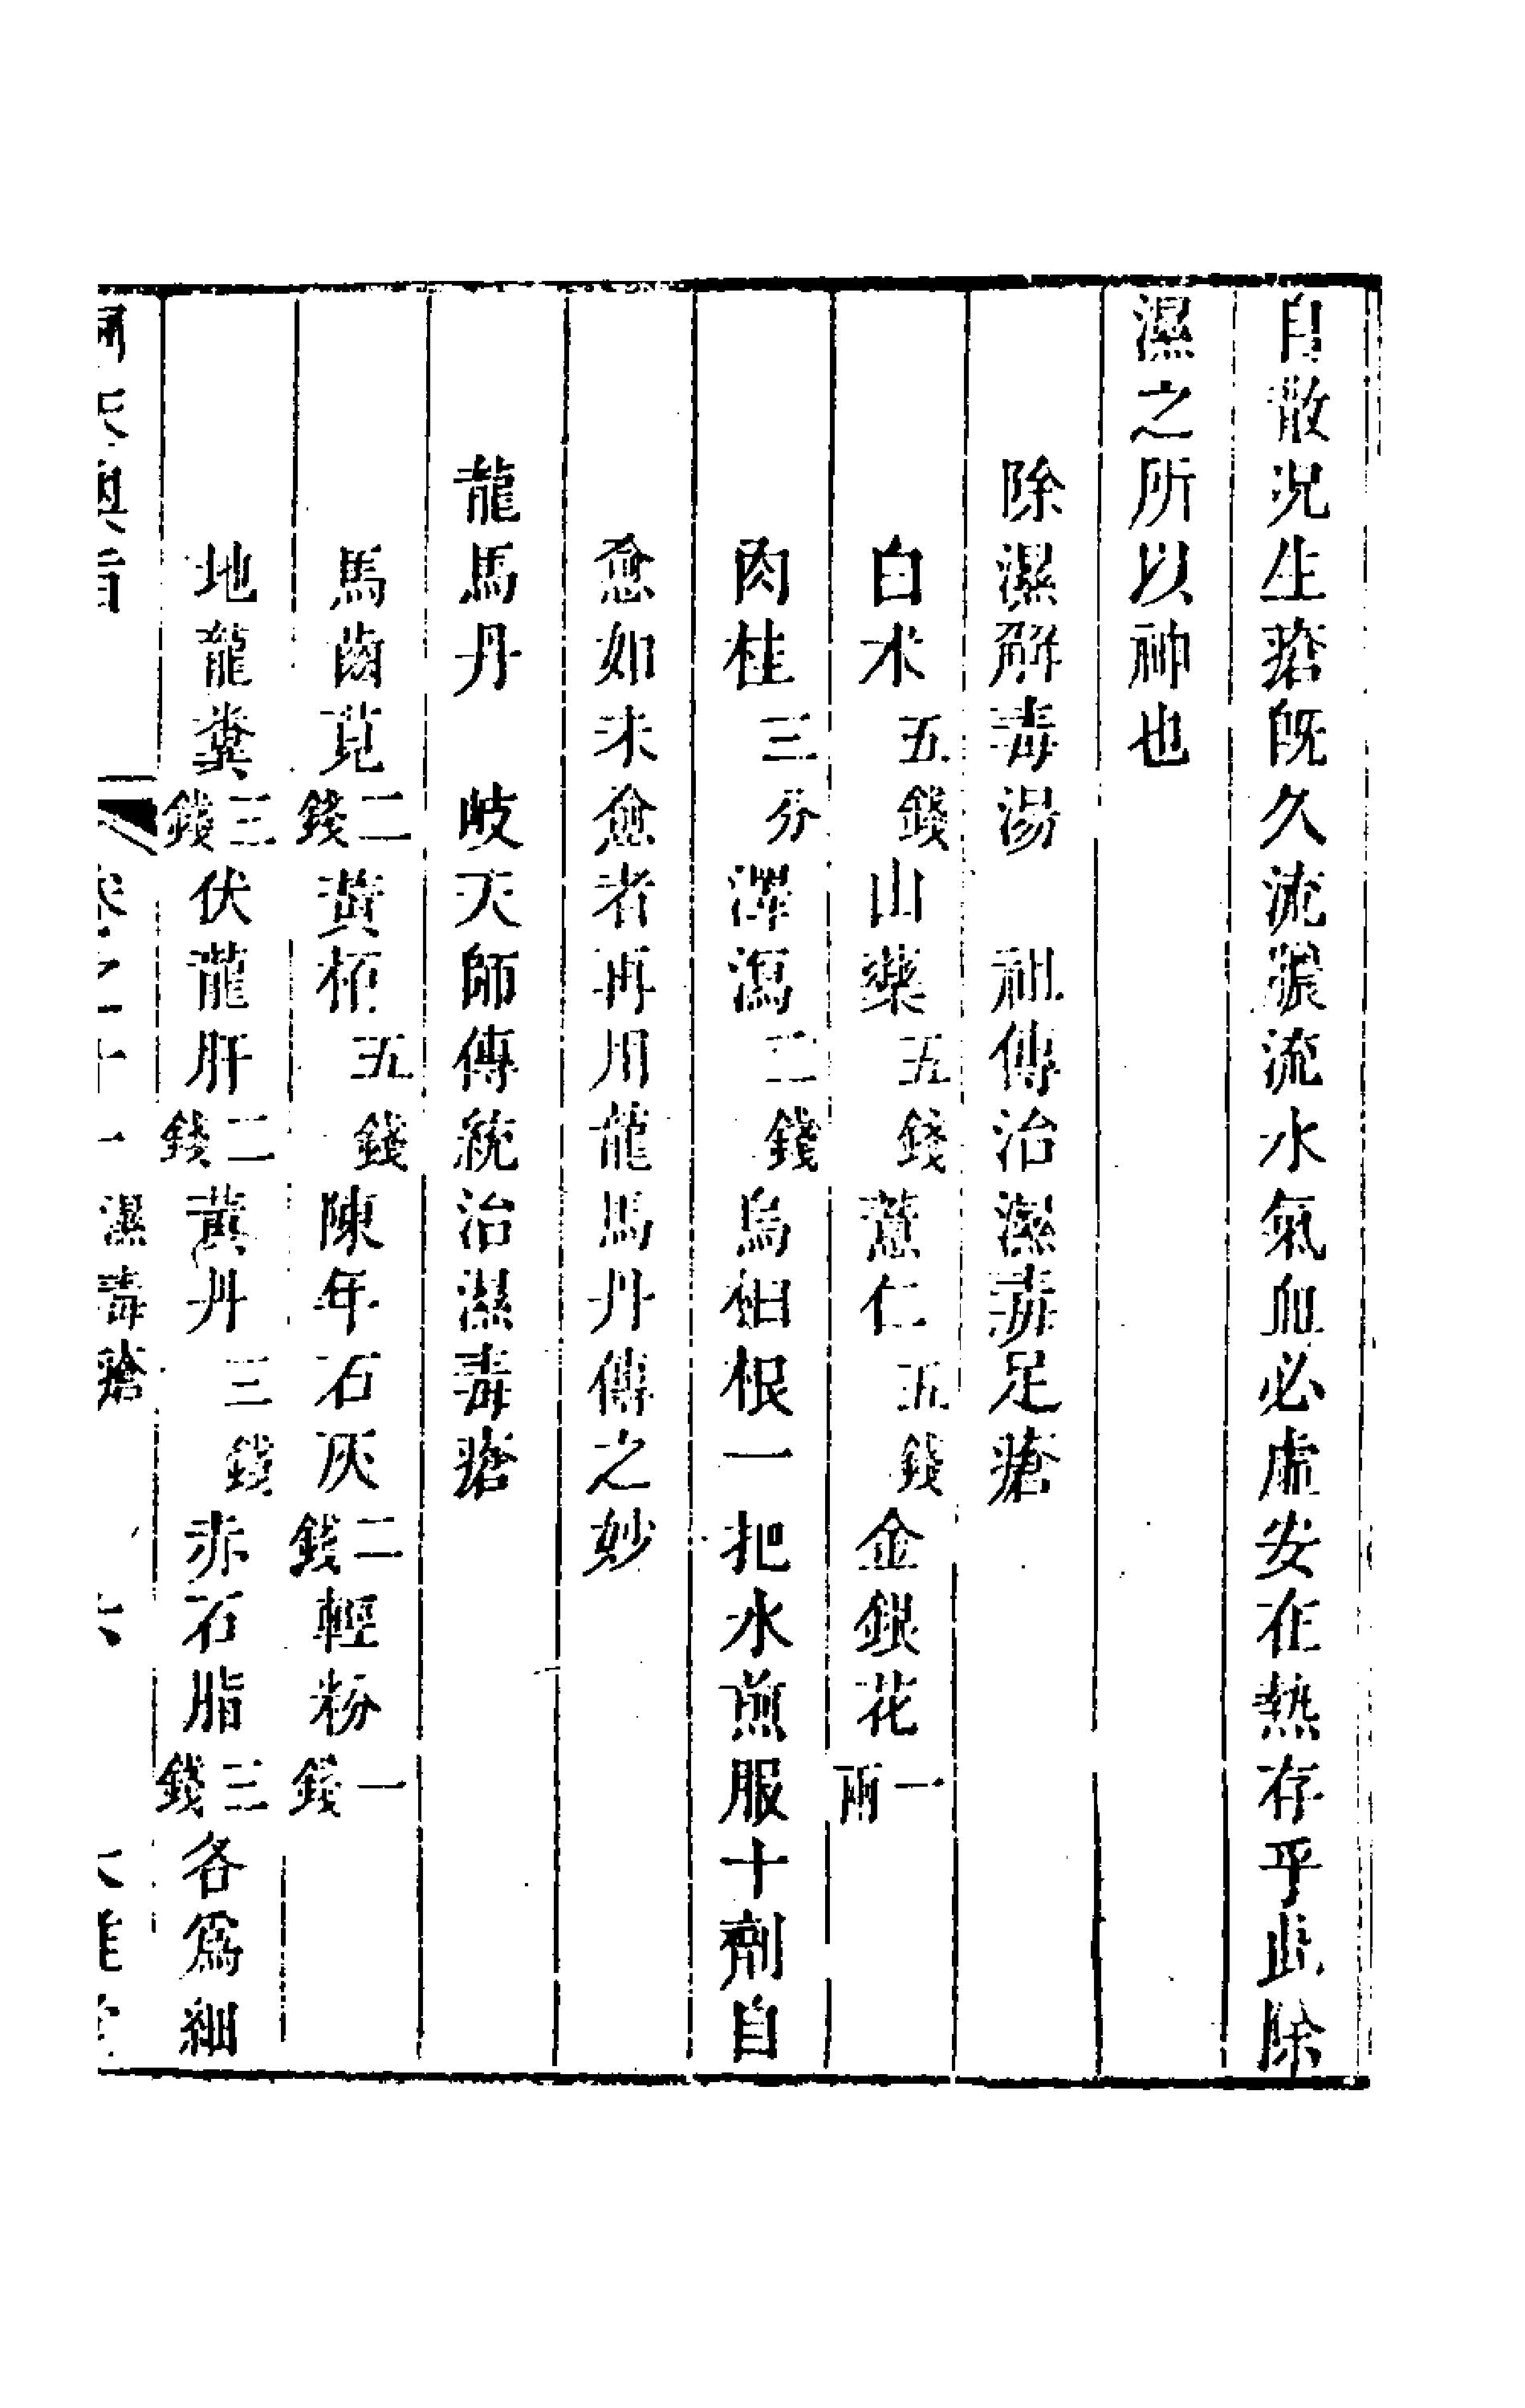 自散况生瘡旣久流膿流水氣血必虛安在熱存乎此除
濕之所以神也
除濕解毒湯　祖傳治濕毒足瘡
白术五錢山藥五錢薏仁五錢金銀花一兩
肉桂三分澤瀉二錢烏桕根一把水煎服十劑自
愈如未愈者再用龍馬丹傳之妙
龍馬丹　岐天師傳統治濕毒瘡
馬齒莧二錢黃柏五錢陳年石灰二錢輕粉一錢
地龍糞三錢伏龍肝二錢黃丹三錢赤石脂三錢各爲細
洞天奧旨　卷之十一　濕毒瘡　六　大雅堂